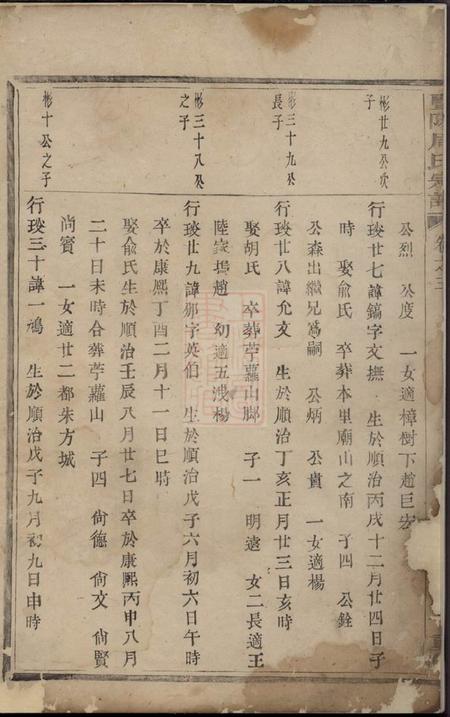 暨陽周氏宗譜 卷之三
公烈 公度 一女適樟樹下趙巨宏
彬廿九公次子
行琰廿七諱鎬字文撫 生於順治丙戌十二月廿四日子
時 娶俞氏 卒葬本里廟山之南 子四 公銓
公森出繼兄為嗣 公炳 公貴 一女適楊
彬三十九公長子
行琰廿八諱允文 生於順治丁亥正月廿三日亥時
娶胡氏 卒葬苧蘿山脚 子一 明遠 女二長適王
陸家塢趙 幼適五洩楊
彬三十八公之子
行琰廿九諱郊字英伯 生於順治戊子六月初六日午時
卒於康熙丁酉二月十一日巳時
娶俞氏生於順治壬辰八月廿七日卒於康熙丙申八月
二十日未時合葬苧蘿山 子四 尙德 尙文 尙賢
尙賓 一女適廿二都朱方城
彬十公之子
行琰三十諱一鴻 生於順治戊子九月初九日申時